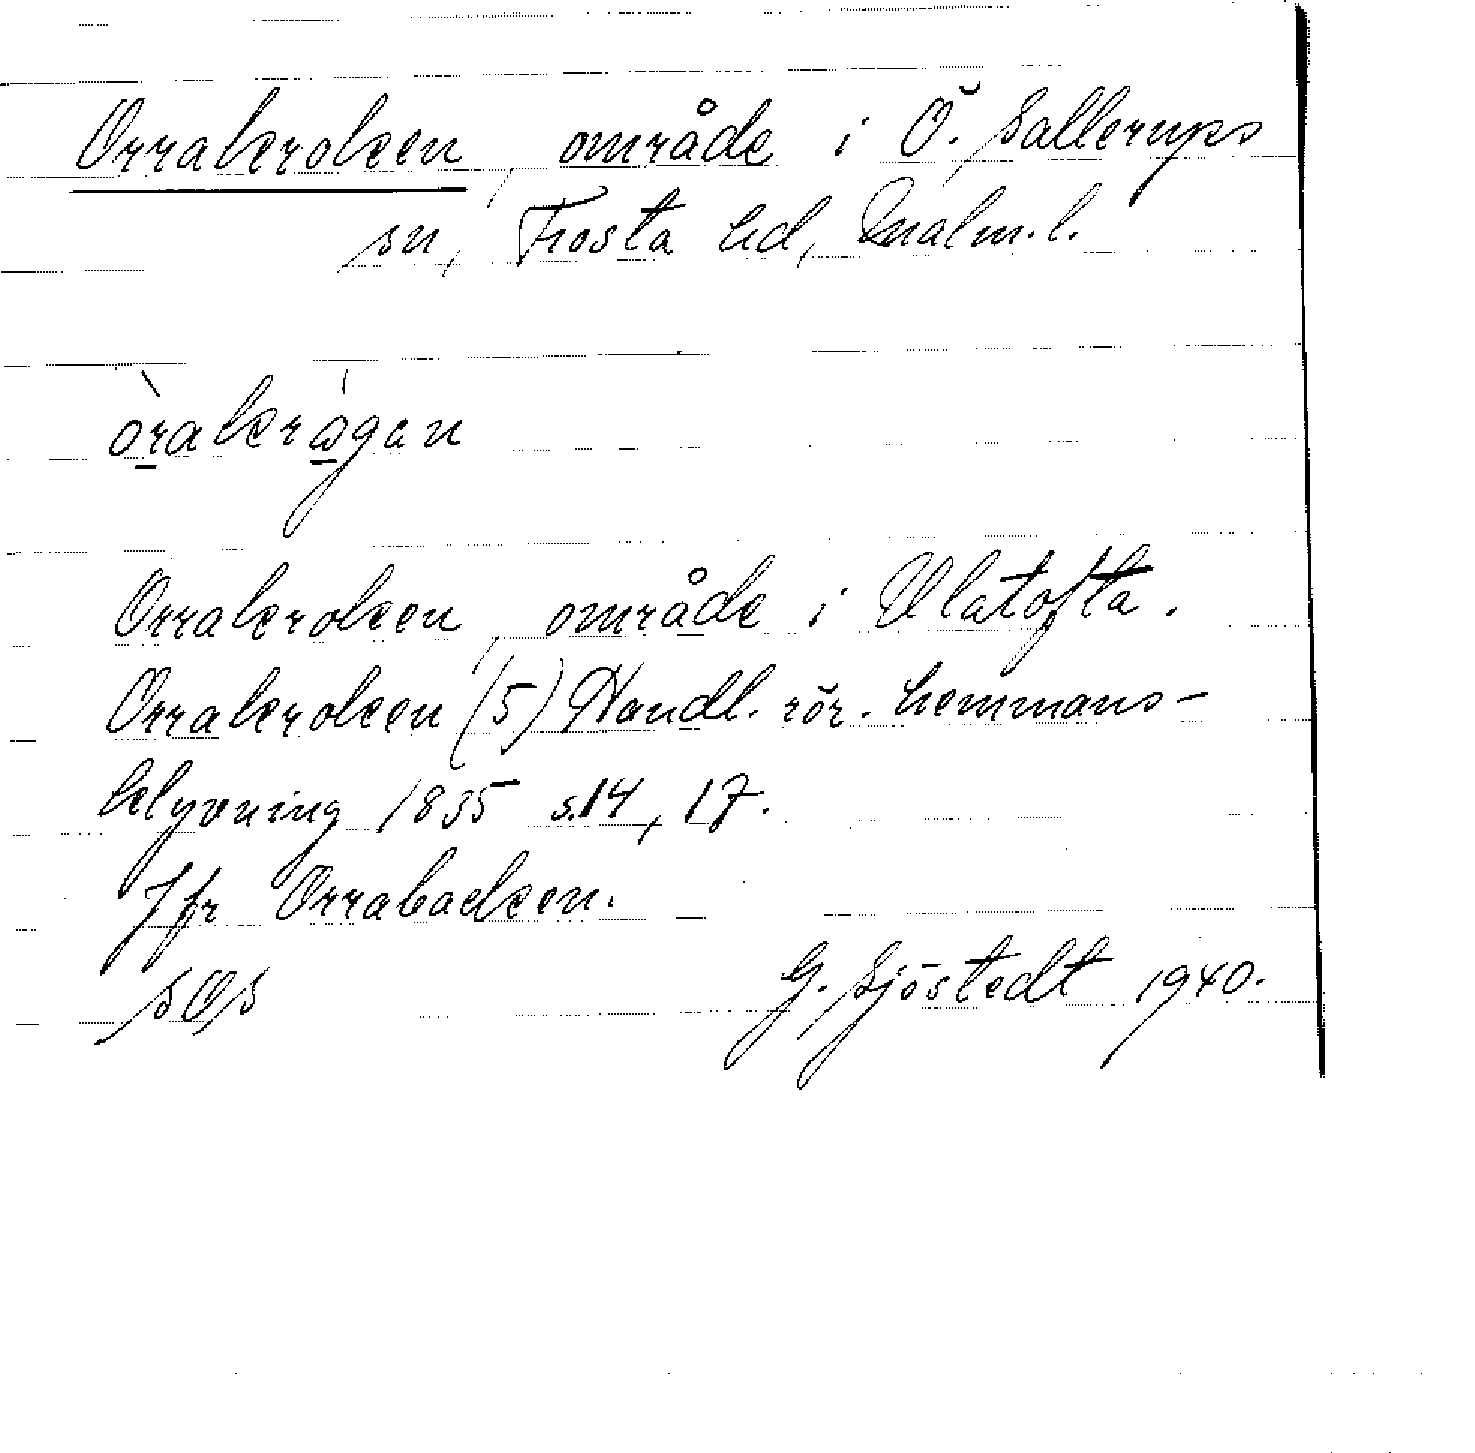 Orrakroken, område i Ö. Sallerups
sn, Frosta hd, Malm. l.
òrakrågan
Orrakroken, område i Ulatofta.
Orrakroken (5) Handl. rör. hemmans-
klyvning 1835 s. 14, 17.
Jfr Orrabacken.
SOS
G. Sjöstedt 1940.